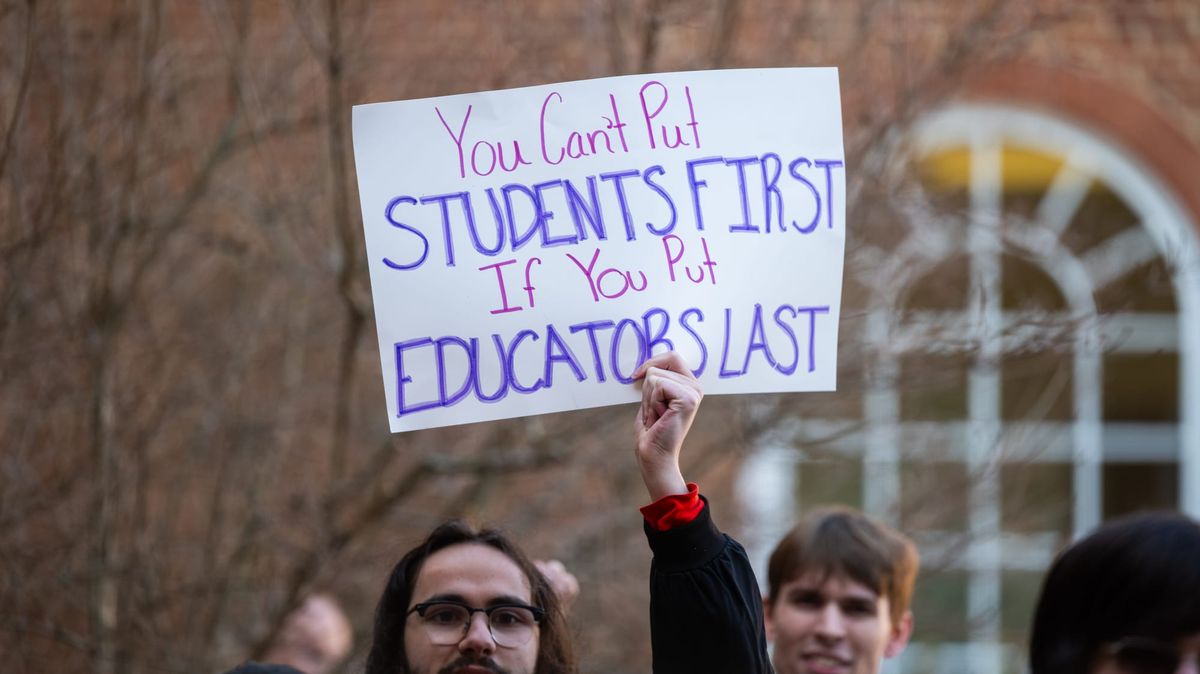 You Can't Put
STUDENTS FIRST
If You Put
EDUCATORS LAST